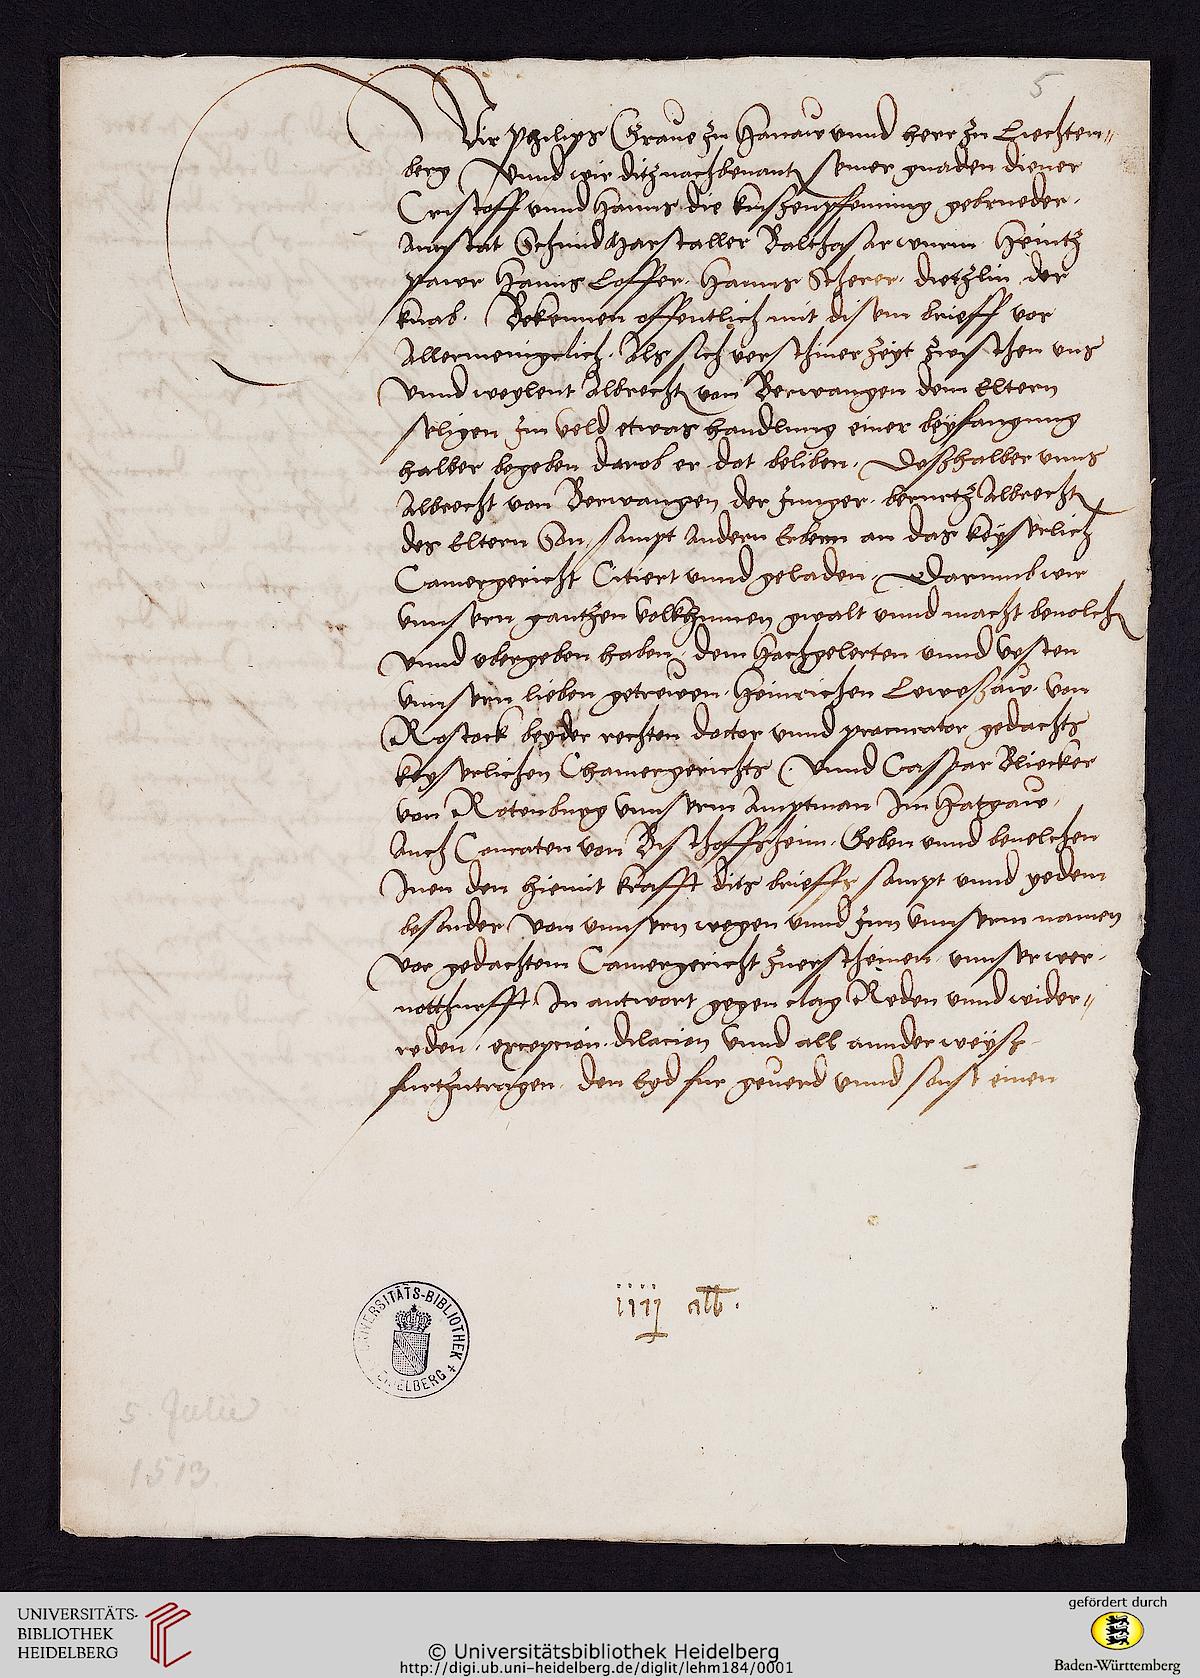 5
Wir Philips Graue zu Hanaw vnnd herr zu Liechtem-
berg vnnd wir ditz nachbenant seiner gnaden diener
Cristoff vnnd Hanns die kuchenpfening gebrueder.
Anstat Schmidharstaller Balthasar wurm Heintz
pawr Hanns Loffer. Hanns Scherer. dietzlin der
knab. Bekennen offentlich mit disem brieff vor
Allermeniglich. Als sich verschiner zeyt zwischen vns
vnnd weylent Albrecht von Berwangen dem Eltern
seligen Im veld etwas handlung einer beyfangung
halber begeben darob er dot beliben. Deßhalber vnns
Albrecht von Berwangen der Junger. berurtz Albrecht
des Eltern Son, sampt andern Erben an das keyserlich
Camergericht Citiert vnnd geladen. Darumb wir
vnnsern gantzen volkhumen gwalt vnnd macht beuolch
vnnd vbergeben haben, dem Hochgelerten vnnd vesten
vnnsern lieben getrewen. Heinrichen Leweßaw. von
Rostock beyder rechten doctor vnnd procurator gedachts
keyserlichen Chamergerichts. vnnd Caspar Bliecker
von Rotenburg vnnserm Amptman Im Hatgaw,
Auch Conraten von Bischoffsheim. Geben vnnd beuelchen
Inen den hiemit krafft dits brieffs sampt vnnd yedem
besonder von vnnsern wegen vnnd Inn vnnserm namen
vor gedachtem Camergericht zuerscheinen. vnnser wer-
notthurfft. In antwort gegen clag Reden vnnd wider-
reden. excepcion. dilacion vnnd all annder weyße
furtzutragen. den Eyd fur geuerd vnnd sonst einen
iiij alb.
UNIVERSITÄTS-BIBLIOTHEK HEIDELBERG
5. Julii
1513.
UNIVERSITÄTS-
BIBLIOTHEK
HEIDELBERG
© Universitätsbibliothek Heidelberg
http://digi.ub.uni-heidelberg.de/diglit/lehm184/0001
gefördert durch
Baden-Württemberg